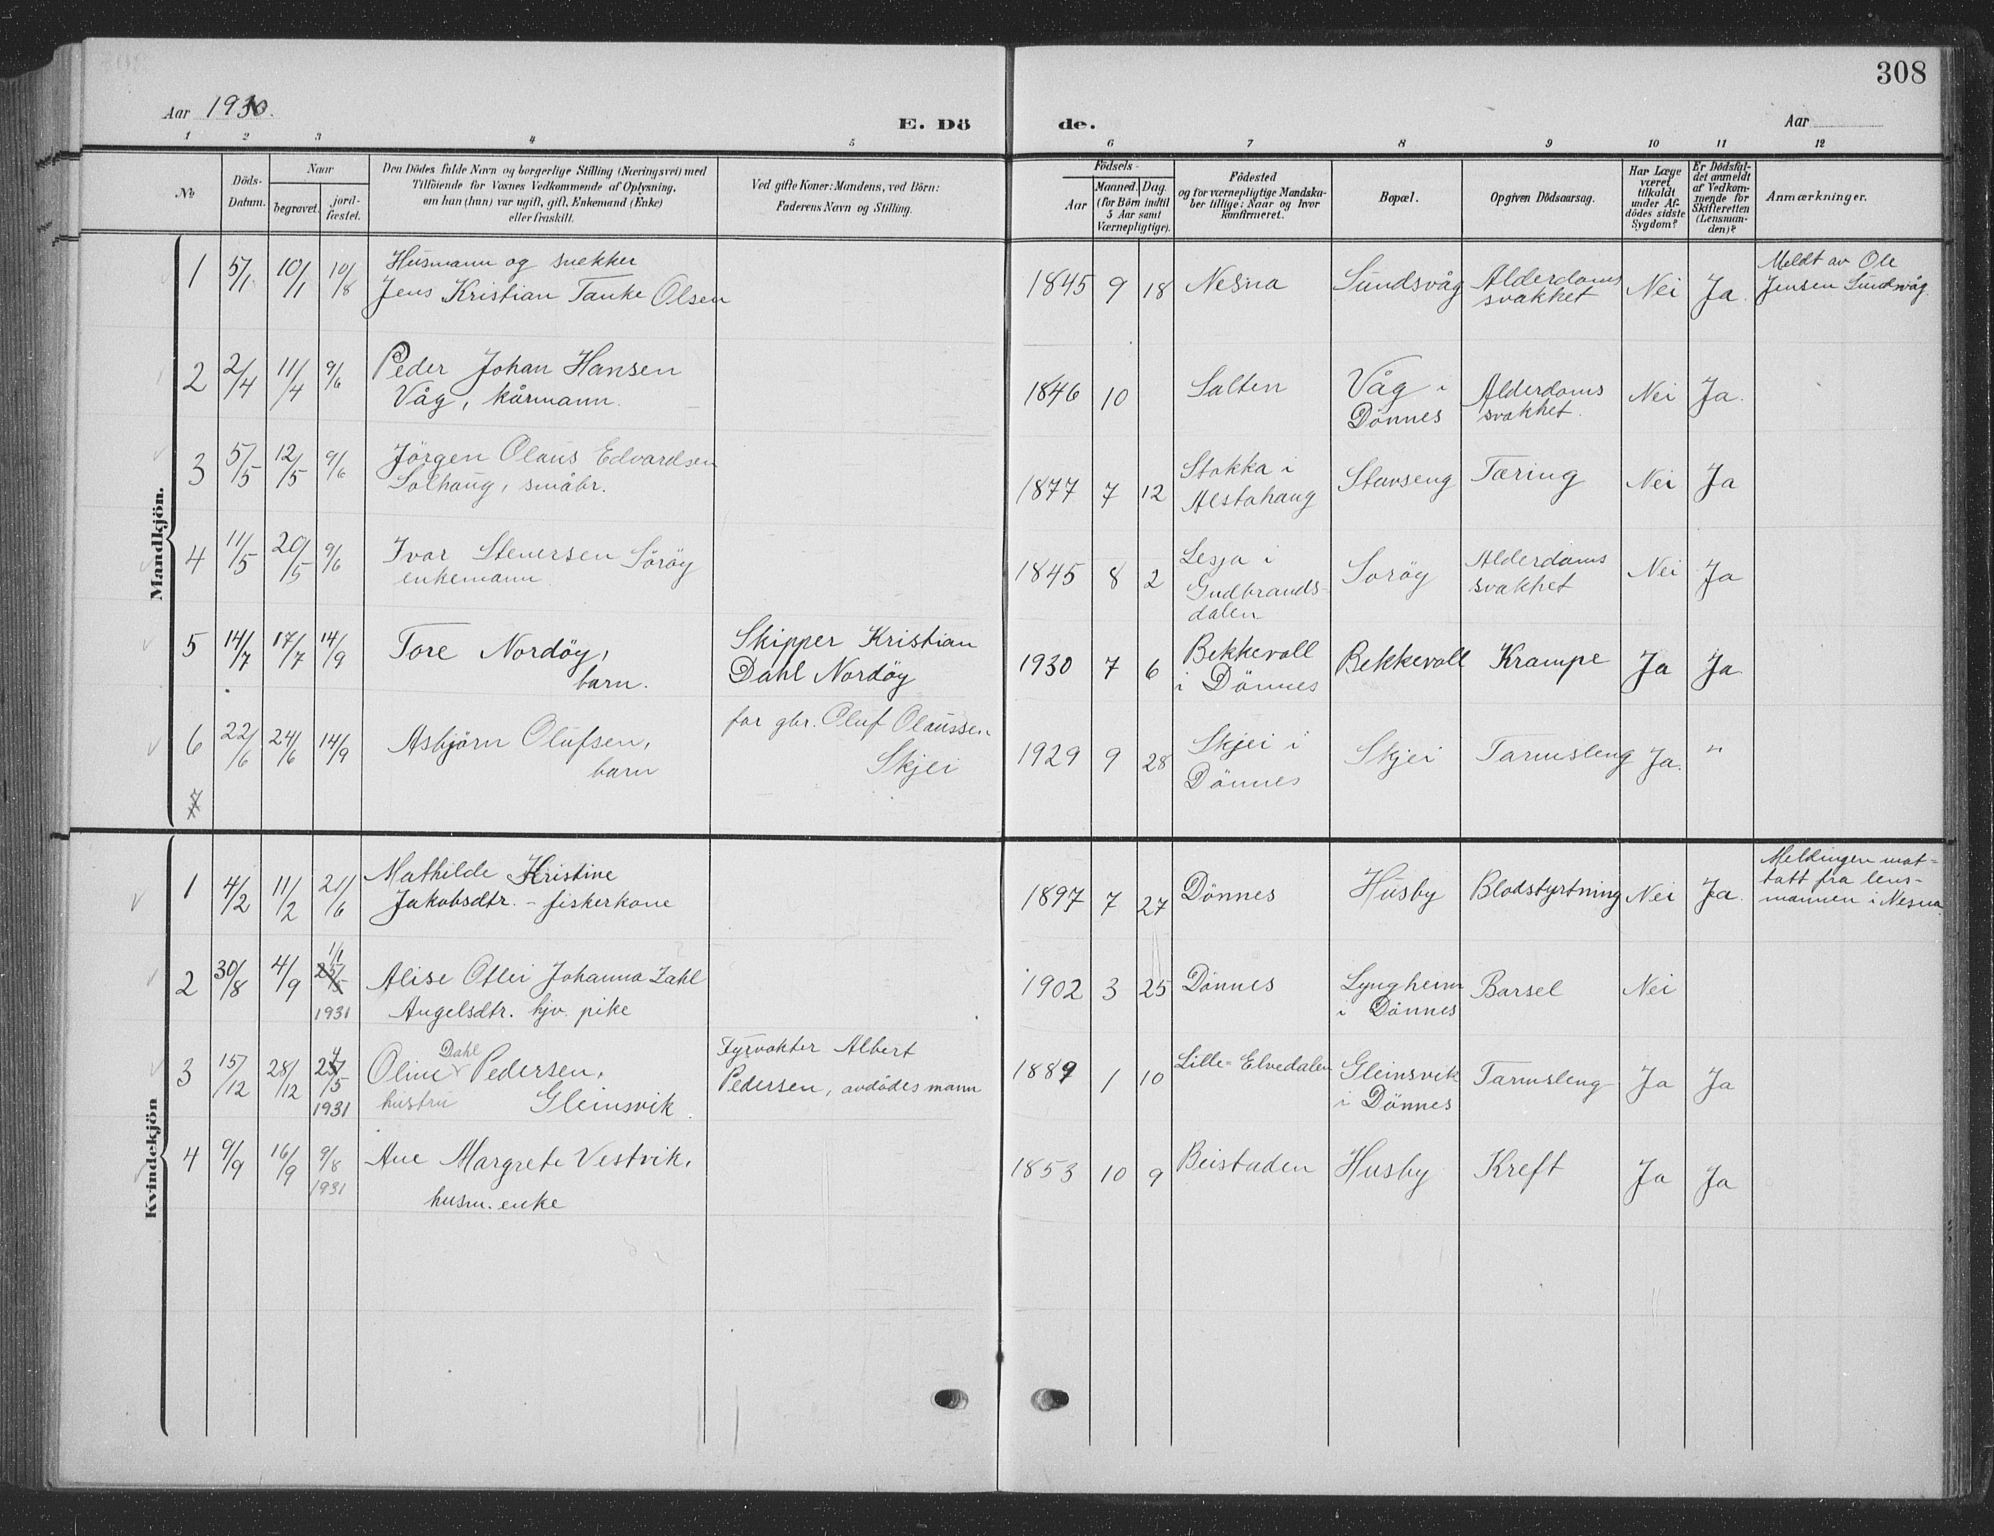 308
Aar 1930.
E. Dö de.
Aar
1 2 3 4 5 6 7 8 9 10 11 12
No
Döds-
Datum.
Naar
begravet.
jord-
fæstet.
Den Dödes fulde Navn og borgerlige Stilling (Næringsvei) med
Tilföiende for Voxnes Vedkommende af Oplysning,
om han (hun) var ugift, gift, Enkemand (Enke)
eller fraskilt.
Ved gifte Koner: Mandens, ved Börn:
Faderens Navn og Stilling.
Födsels-
Aar
Maaned.
Dag.
(for Börn indtil
5 Aar samt
Værnepligtige).
Födested
og for værnepligtige Mandska-
ber tillige: Naar og hvor
konfirmeret.
Bopæl.
Opgiven Dödsaarsag.
Har Læge
været
tilkaldt
under Af-
dödes sidste
Sygdom?
Er Dödsfal-
det anmeldt
af Vedkom-
mende for
Skifteretten
(Lensman-
den)?
Anmærkninger.
Mandkjön.
1 5/1 10/1 10/8 Husmann og snekker
Jens Kristian Tanke Olsen
1845 9 18 Nesna Sundsvåg Alderdoms
svakhet Nei Ja. Meldt av Ole
Jensen Sundsvåg.
2 2/4 11/4 9/6 Peder Johan Hansen
Våg, kårmann.
1846 10 Salten Våg i
Dönnes Alderdoms
svakhet. Nei Ja.
3 5/5 12/5 9/6 Jörgen Olaus Edvardsen
Solhaug, småbr.
1877 7 12 Stokka i
Alstahaug Stavseng Tæring Nei Ja
4 11/5 20/5 9/6 Ivar Stenersen Söröy
enkemann.
1845 8 2 Lesja i
Gudbrands-
dalen Soröy Alderdoms
svakhet Nei Ja
5 14/7 17/7 14/9 Tore Nordöy,
barn.
Skipper Kristian
Dahl Nordöy
1930 7 6 Bekkevoll
i Dönnes Bekkevoll Krampe Ja Ja.
6 22/6 24/6 14/9 Asbjörn Olufsen,
barn
for gbr. Oluf Olaussen
Skjei
1929 9 28 Skjei i
Dönnes Skjei Tarmsleng Ja. "
7
Kvindekjön
1 4/2 11/2 21/6 Mathilde Kristine
Jakobsdtr. - fiskerkone
1897 7 27 Dönnes Husby Blodstyrtning Nei Ja. Meldingen mot-
tatt fra lens-
mannen i Nesna.
2 30/8 4/9 1/1
1931 Alise Otlei Johanna Zahl
Angelsdtr. hjv. pike
1902 3 25 Dönnes Lyngheim
i Dönnes Barsel Nei
3 15/12 28/12 25/5
1931 Oline Dahl Pedersen,
hustru Gleinsvik.
Fyrvokter Albert
Pedersen, avdödes mann
1889 1 10 Lille-Elvedalen Gleinsvik
i Dönnes Tarmsleng Ja Ja
4 9/9 16/9 9/8
1931 Ane Margrete Vestvik,
husm. enke
1853 10 9 Beistaden Husby Kreft Ja Ja